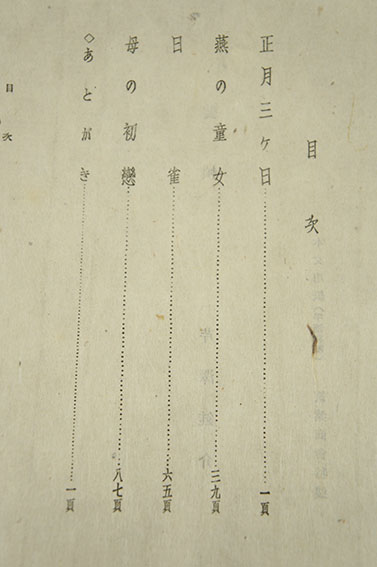 目次
正月三ヶ日……一頁
燕の童女……三九頁
日雀……六五頁
母の初戀……八七頁
◇あとがき……一頁
目次